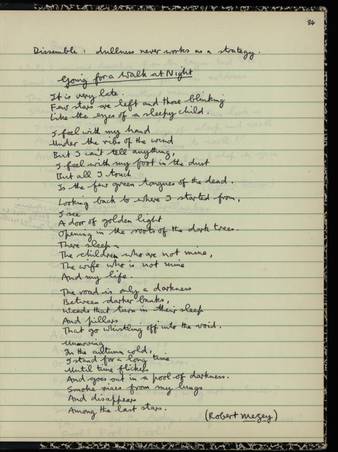 84
Dissemble : dullness never works as a strategy.
Going for a Walk at Night
It is very late.
Few stars are left and those blinking
Like the eyes of a sleepy child.
I feel with my hand
Under the ribs of the wind
But I can't tell anything,
I feel with my foot in the dust
But all I touch
Is the few green tongues of the dead.
Looking back to where I started from,
I see
A door of golden light
Opening in the roots of the dark trees.
There sleep
The children who are not mine,
The wife who is not mine
And my life.
The road is only a darkness
Between darker banks,
Weeds that turn in their sleep
And pillars
That go whistling off into the void.
Unmoving
In the autumn cold,
I stand for a long time
Until time flickers
And goes out in a pool of darkness.
Smoke rises from my lungs
And disappears
Among the last stars.
(Robert Mezey)